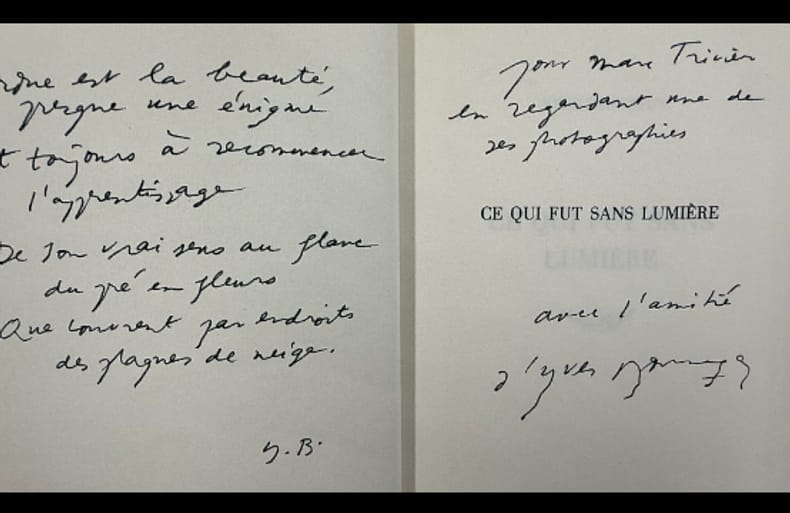 est la beauté,
presque une énigme
toujours à recommencer
l'apprentissage
De son vrai sens au flanc
du pré en fleurs
Que couvrent par endroits
des plaques de neige.
Y.B.
pour Marc Trivier
en regardant une de
ses photographies
CE QUI FUT SANS LUMIÈRE
avec l'amitié
d'Yves Bonnefoy